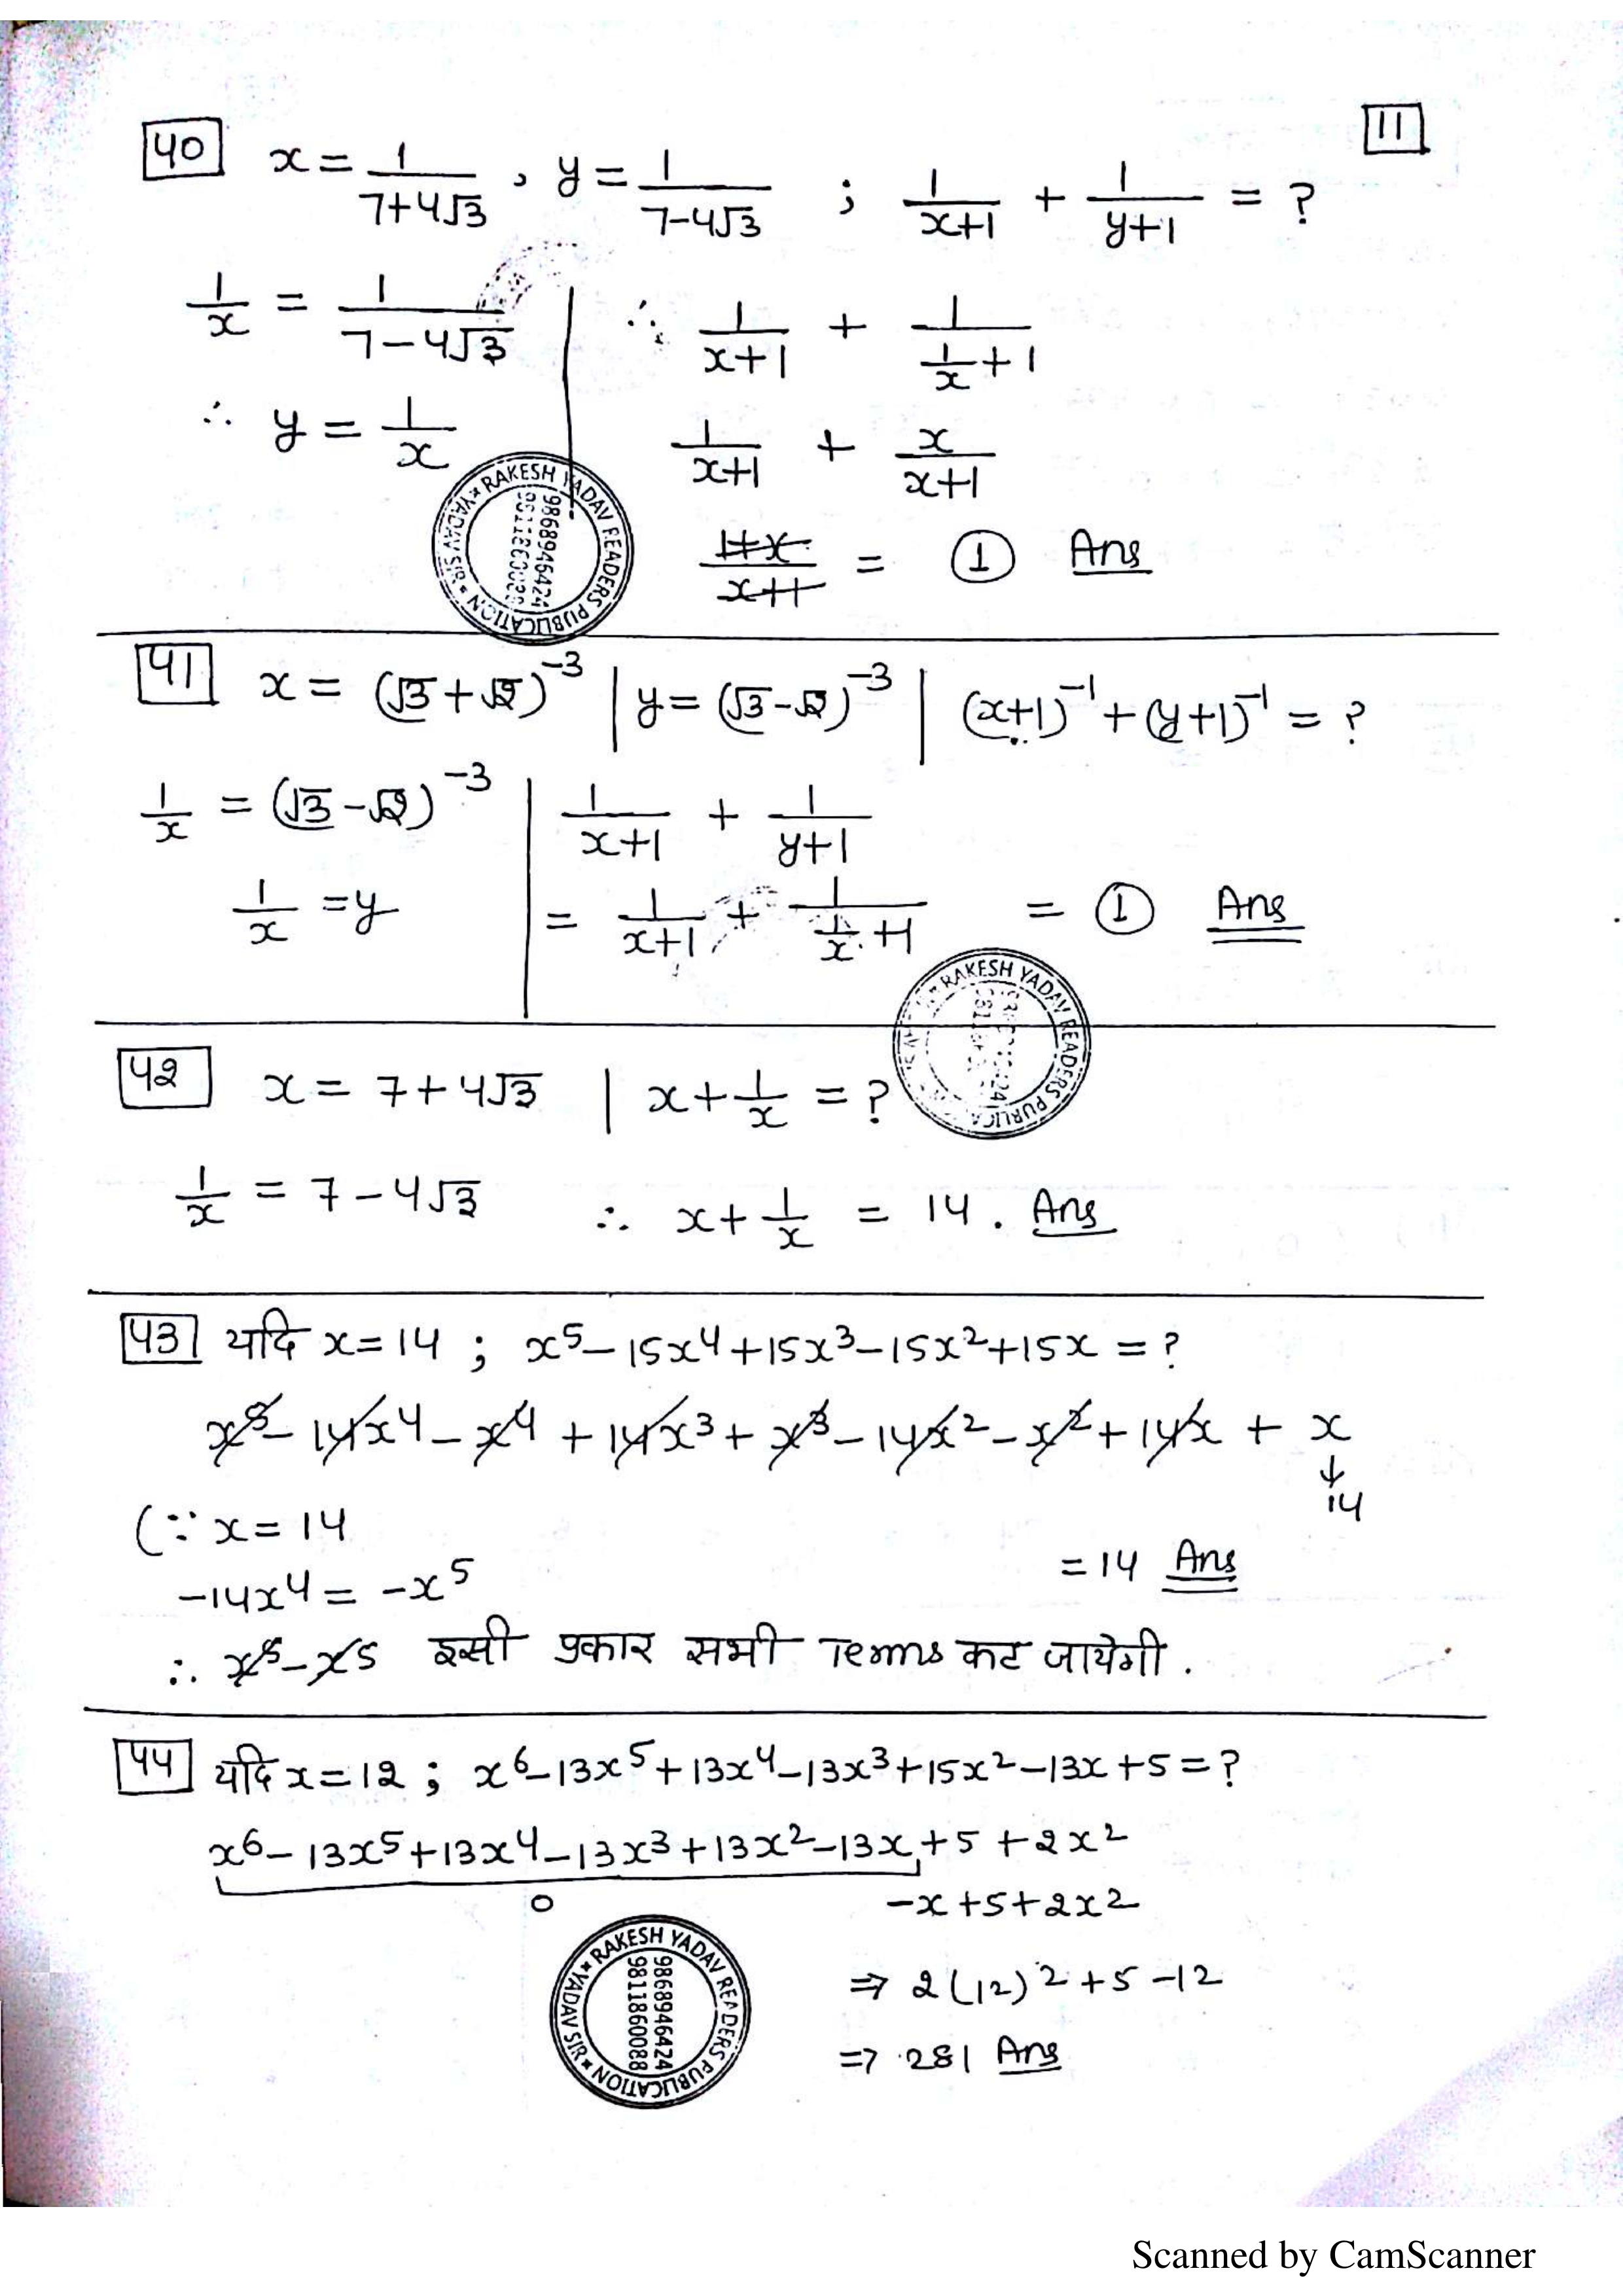 11
40 x = 1/(7+4√3) , y = 1/(7-4√3) ; 1/(x+1) + 1/(y+1) = ?
1/x = 1/(7-4√3) | ∴ 1/(x+1) + 1/(1/x + 1)
∴ y = 1/x 1/(x+1) + x/(x+1)
(1+x)/(x+1) = ① Ans
RAKESH YADAV READERS PUBLICATION * YADAV SIR *
9868946424
9811860088
41 x = (√3+√2)⁻³ | y = (√3-√2)⁻³ | (x+1)⁻¹ + (y+1)⁻¹ = ?
1/x = (√3-√2)⁻³ | 1/(x+1) + 1/(y+1)
1/x = y | = 1/(x+1) + 1/(1/x + 1) = ① Ans
RAKESH YADAV READERS
42 x = 7+4√3 | x + 1/x = ?
1/x = 7-4√3 ∴ x + 1/x = 14. Ans
43 यदि x=14 ; x⁵-15x⁴+15x³-15x²+15x = ?
x⁵-14x⁴-x⁴+14x³+x³-14x²-x²+14x+x
↓
14
(∵ x=14
= 14 Ans
-14x⁴ = -x⁵
∴ x⁵-x⁵ इसी प्रकार सभी Terms कट जायेगी.
44 यदि x=12 ; x⁶-13x⁵+13x⁴-13x³+15x²-13x+5=?
x⁶-13x⁵+13x⁴-13x³+13x²-13x+5+2x²
0 -x+5+2x²
⇒ 2(12)²+5-12
⇒ 281 Ans
RAKESH YADAV READERS PUBLICATION * YADAV SIR *
9868946424
9811860088
Scanned by CamScanner